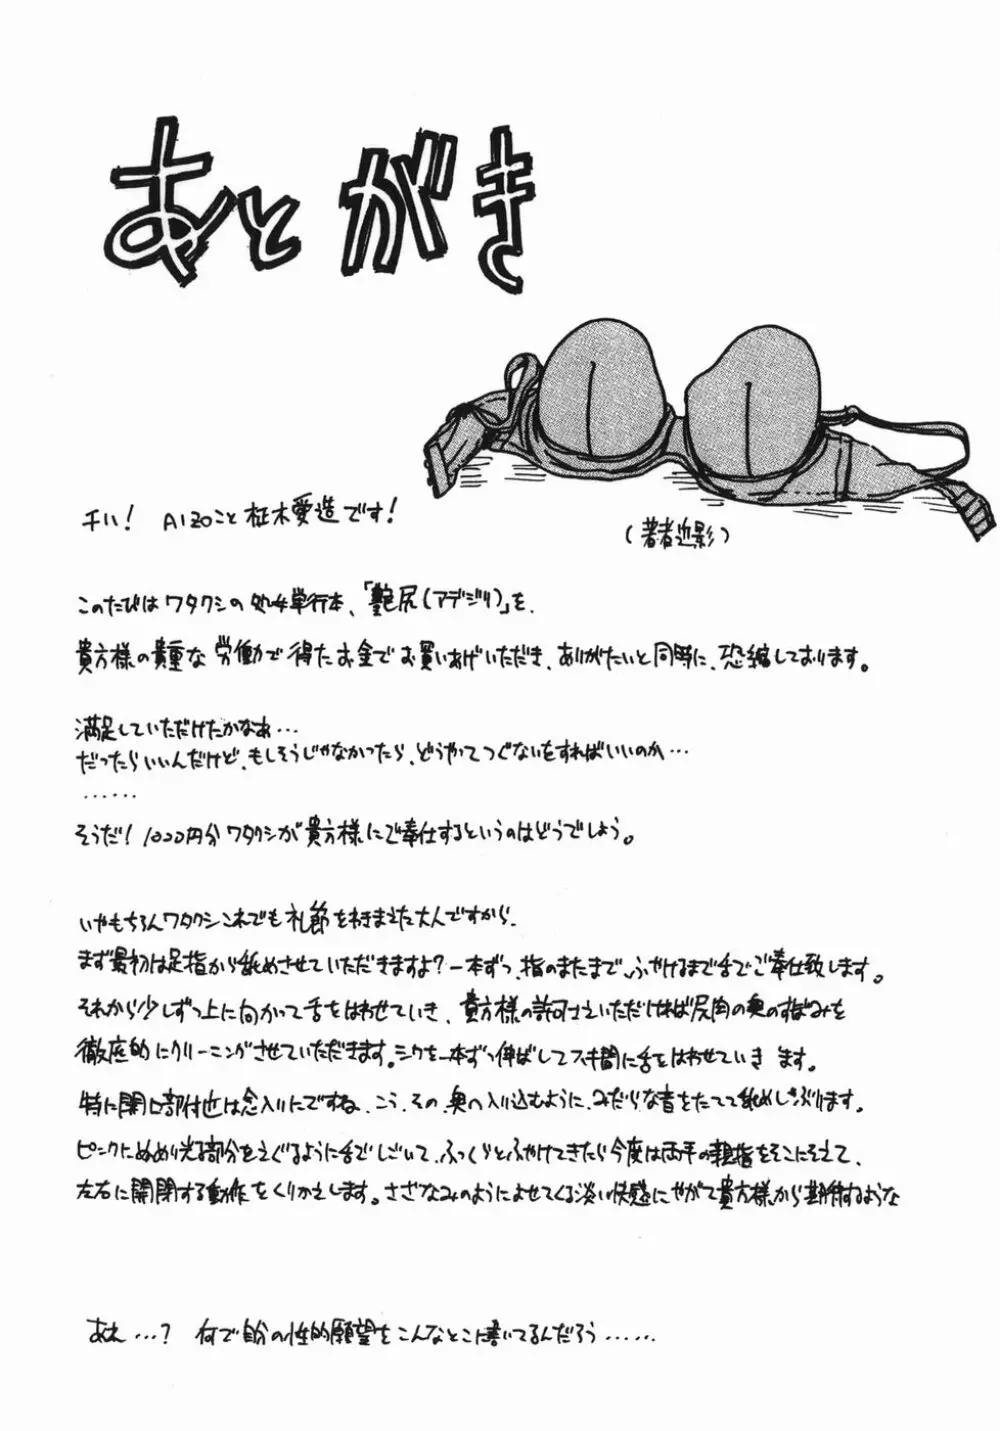 あとがき
チい! AIZOこと柾木愛造です!
(著者近影)
このたびはワタクシの処女単行本、「艶尻(アデジリ)」を、
貴方様の貴重な労働で得たお金でお買いあげいただき、ありがたいと同時に、恐縮しております。
満足していただけたかなぁ…
だったらいいんだけど、もしそうじゃなかったら、どうやってつぐないをすればいいのか…
……
そうだ!1000円分ワタクシが貴方様にご奉仕するというのはどうでしょう。
いやもちろんワタクシこれでも礼節をわきまえた大人ですから、
まず最初は足指から舐めさせていただきますよ?一本ずつ、指のまたまで、ふやけるまで舌でご奉仕致します。
それから少しずつ上に向かって舌をはわせていき、貴方様の許可さえいただければ尻肉の奥のすぼみを
徹底的にクリーニングさせていただきます。シワを一本ずつ伸ばしてスキ間に舌をはわせていき ます。
特に開口部付近は念入りにですね、こう、その、奥へ入り込むように、みだらな音をたてて舐めしゃぶります。
ピンクにぬめり光る部分をえぐるように舌でしごいて、ふっくらとふやけてきたら今度は両手の親指をそこにそえて、
左右に開閉する動作をくりかえします。さざなみのようによせてくる淡い快感にやがて貴方様から期待するような
あえ…? 何で自分の性的願望をこんなとこに書いてるんだろう……